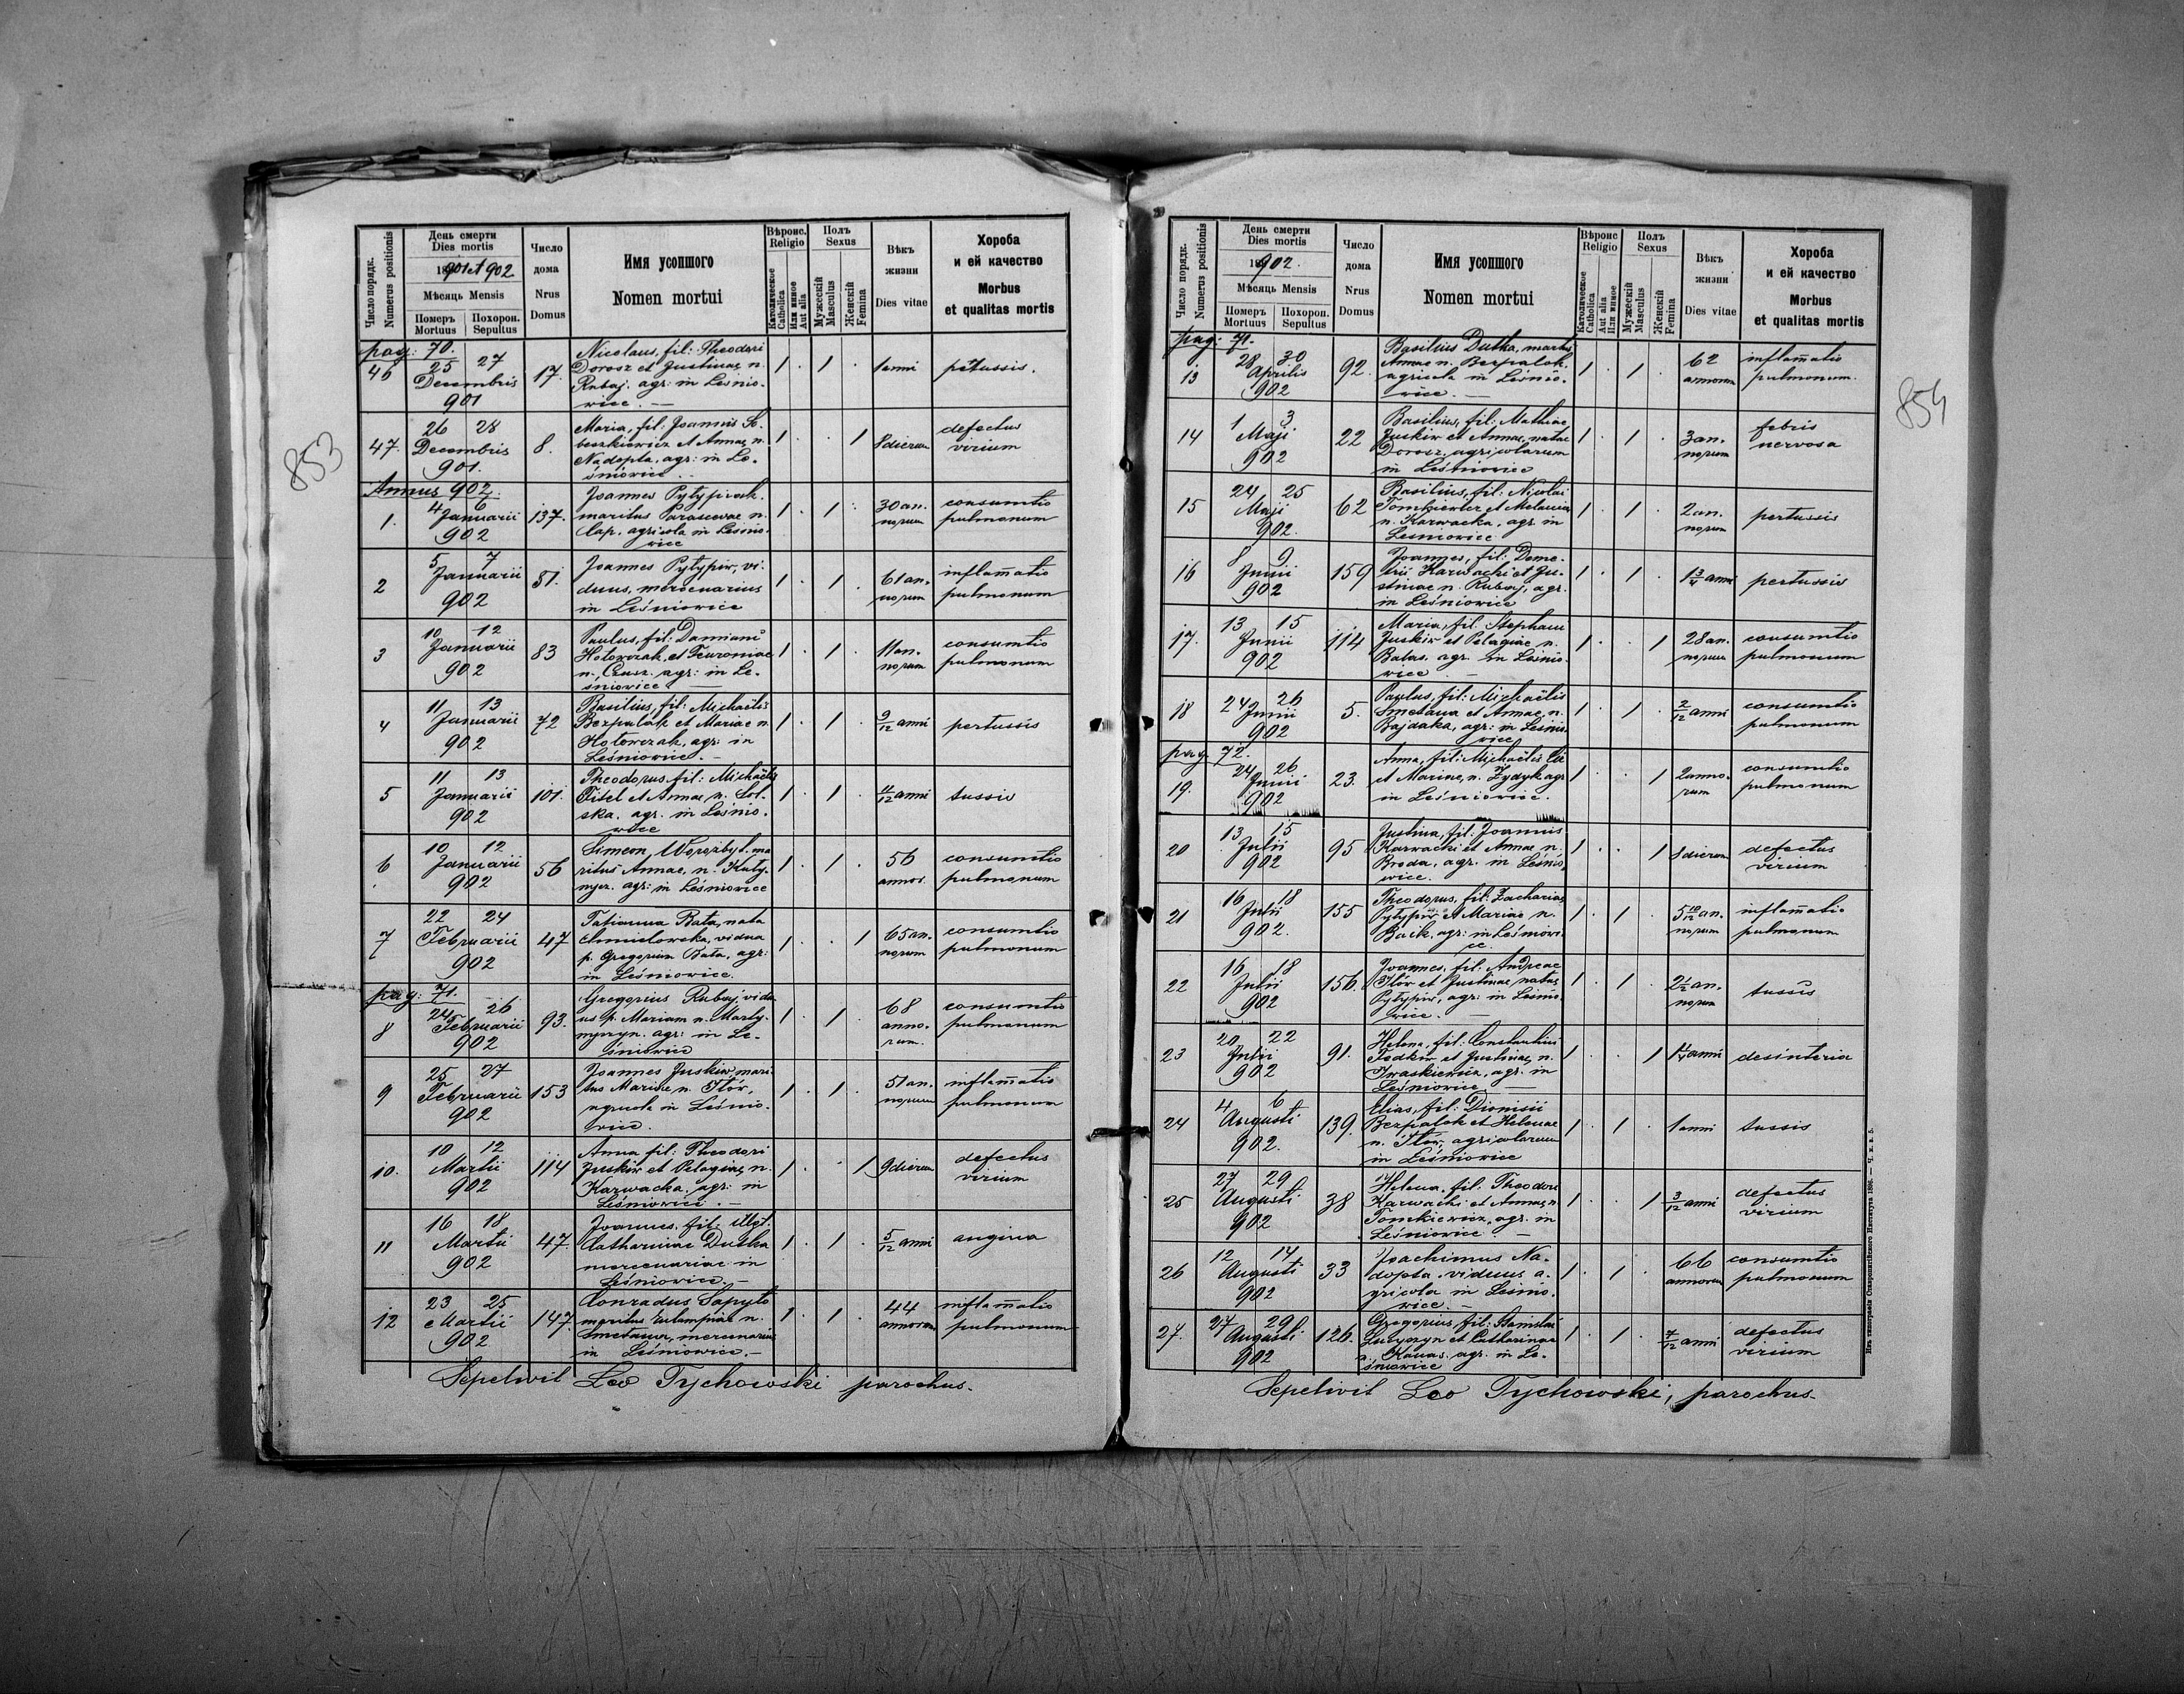 853
Число порядк.
Numerus positionis
День смерти
Dies mortis
18901 et 902
Мѣсяць Mensis
Померъ
Mortuus
Похорон.
Sepultus
Число
дома
Nrus
Domus
Имя усопшого
Nomen mortui
Вѣроис.
Religio
Католическое
Catholica
Или иниое
Aut alia
Полъ
Sexus
Мужескій
Masculus
Женскій
Femina
Вѣкъ
жизни
Dies vitae
Хороба
и ей качество
Morbus
et qualitas mortis
pag: 70.
46
25 27
Decembris
901
17.
Nicolaus, fil: Theodori
Dorosz et Justinae n.
Rubaj. agr: in Leśnio-
wice. —
1 . 1 .
1 anni
47.
26 28
Decembris
901.
8.
Maria, fil: Joannis
et Annae n.
Nadopta, agr: in Le-
śniowice
1 . . 1
8 dierum
defectus
virium
Annus 902.
1.
4 6
Januarii
902
137.
Joannes Pytypiak.
maritus Parascevae n.
Cap. agricola in Leśnio-
wice
1 . 1 .
30 an-
norum
consumtio
pulmonum
2
5 7
Januarii
902
81.
Joannes Pytypiw, vi-
duus, mercenarius
in Leśniowice
1 . 1 .
61 an-
norum
inflam̄atio
pulmonum
3
10 12
Januarii
902
83
Paulus, fil: Damiani
Hotowczak, et Feuroniae
n. agr: in Le-
śniowice
1 . 1 .
11 an-
norum
consumtio
pulmonum
4
11 13
Januarii
902
72
Basilius, fil: Michaëlis
Bezpalok et Mariae n.
Hotowczak, agr: in
Leśniowice. —
1 . 1 .
9/12 anni
pertussis
5
11 13
Januarii
902
101.
Theodorus fil: Michaëlis
Titel et Annae n. Sol-
ska. agr. in Leśnio-
wice
1 . 1 .
11/12 anni
tussis
6
10 12
Januarii
902
56
Simeon, Worozbyt. ma
ritus Annae, n.
agr: in Leśniowice
1 . 1 .
56
annor.
consumtio
pulmonum
7
22 24
Februarii
902
47
Tatianna Bata, nata
Chmielowska, vidua
p. Gregorium Bata, agr:
in Leśniowice.
1 . . 1
65 an-
norum
consumtio
pulmonum
pag: 71.
8
24 26
Februarii
902
93.
Gregorius Rubaj, vidu
us p. Mariam n. Marty-
agr: in Le-
śniowice
1 . 1 .
68
anno-
rum.
consumtio
pulmonum
9
25 27
Februarii
902
153
Joannes Juskiw, mari
tus Mariae n. Itów,
agricola in Leśnio-
wice.
1 . 1 .
51 an-
norum
inflam̄atio
pulmonum
10.
10 12
Martii
902
114
Anna fil: Theodori
Juskiw et Pelagiae n.
Karwacka. agr: in
Leśniowice. —
1 . . 1
9 dierum
defectus
virium
11
16 18
Martii
902
47.
Joannes, fil: illgt.
Catharinae Dutka
mercenariae in
Leśniowice. —
1 . 1 .
5/12 anni
angina
12
23 25
Martii
902
147.
Conradus Sapyto
maritus Eulampiae n.
Smetana, mercenarius
in Leśniowice. —
1 . 1 .
44
annorum
inflam̄atio
pulmonum
Sepelivit Leo Tychowski parochus.
854
Число порядк.
Numerus positionis
День смерти
Dies mortis
18902.
Мѣсяць Mensis
Померъ
Mortuus
Похорон.
Sepultus
Число
дома
Nrus
Domus
Имя усопшого
Nomen mortui
Вѣроис
Religio
Католическое
Catholica
Aut alia
Или иниое
Полъ
Sexus
Мужескій
Masculus
Женскій
Femina
Вѣкъ
жизни
Dies vitae
Хороба
и ей качество
Morbus
et qualitas mortis
pag: 71.
13
28 30
Aprilis
902
92.
Basilius Dutka, marit
Annae n. Bezpalok.
agricola in Leśnio-
wice. —
1 . 1 .
62
annorum
inflam̄atio
pulmonum.
14
1 3
Maji
902
22
Basilius, fil: Mathiae
Juskiw et Annae, natae
Dorosz. agricolarum
in Leśniowice
1 . 1 .
3 an-
norum
febris
nervosa
15
24 25
Maji
902.
62
Basilius, fil: Nicolai
Tomkiewicz et Melaniae
n. Karwacka, agr. in
Leśniowice
1 . 1 .
2 an-
norum
pertussis
16
8 9
Junii
902
159
Joannes, fil: Deme-
trii Karwacki et Ju-
stinae n. Rubaj, agr.
in Leśniowice
1 . 1 .
1 3/4 anni
pertussis
17.
13 15
Junii
902
114
Maria, fil. Stephani
Juskiw et Pelagiae n.
Balas. agr. in Leśnio-
wice —
1 . . 1
28 an-
norum
consumtio
pulmonum
18
24 26
Junii
902
5.
Paulus, fil: Michaëlis
Smetana et Annae, n.
Bajdaka, agr: in Leśnio-
wice
1 . 1 .
2/12 anni
consumtio
pulmonum
pag. 72.
19.
24 26
Junii
902
23.
Anna, fil: Michaëlis
et Mariae, n. Zydyk agr
in Leśniowice.
1 . . 1
2 anno-
rum
consumtio
pulmonum
20
13 15
Julii
902
95
Justina, fil: Joannis
Karwacki et Annae n.
Broda, agr. in Leśnio-
wice.
1 . . 1
8 dierum
defectus
virium
21
16 18
Julii
902.
155
Theodorus, fil: Zachariae
Pytypiw et Mariae n.
Baik, agr: in Leśniowi-
ce.
1 . 1 .
5 10/12 an-
norum
inflam̄atio
pulmonum
22
16 18
Julii
902
156.
Joannes, fil: Andreae
Itów et Justinae, natae
Pytypiw, agr: in Leśnio-
wice. —
1 . 1 .
2 1/2 an-
norum
tussis
23
20 22
Julii
902
91.
Helena, fil: Constantini
Fedkiw et Justinae, n.
Iwaskiewicz, agr. in
Leśniowice —
1 . . 1
1 1/4 anni
desinteria
24
4 6
Augusti
902.
139.
Elias, fil: Dionisii
Bezpalok et Helenae
n. Itów, agricolarum
in Leśniowice
1 . 1 .
1 anni
tussis
25
27 29
Augusti
902
38
Helena, fil. Theodori
Karwacki et Annae, n.
Tomkiewicz, agr. in
Leśniowice —
1 . . 1
3/12 anni
defectus
virium
26
12 14
Augusti
902
33
Joachimus Na-
dopta. viduus a-
gricola in Leśnio-
wice. —
1 . 1 .
66
annorum
consumtio
pulmonum
27.
27 29
Augusti
902
126.
Gregorius, fil: Stanislai
et Catharinae
n. Kanas. agr. in Le-
śniowice
1 . 1 .
7/12 anni
defectus
virium
Sepelivit Leo Tychowski, parochus.
Изъ типографіи Ставропигійского Института 1896. — Ч. н. в. 5.